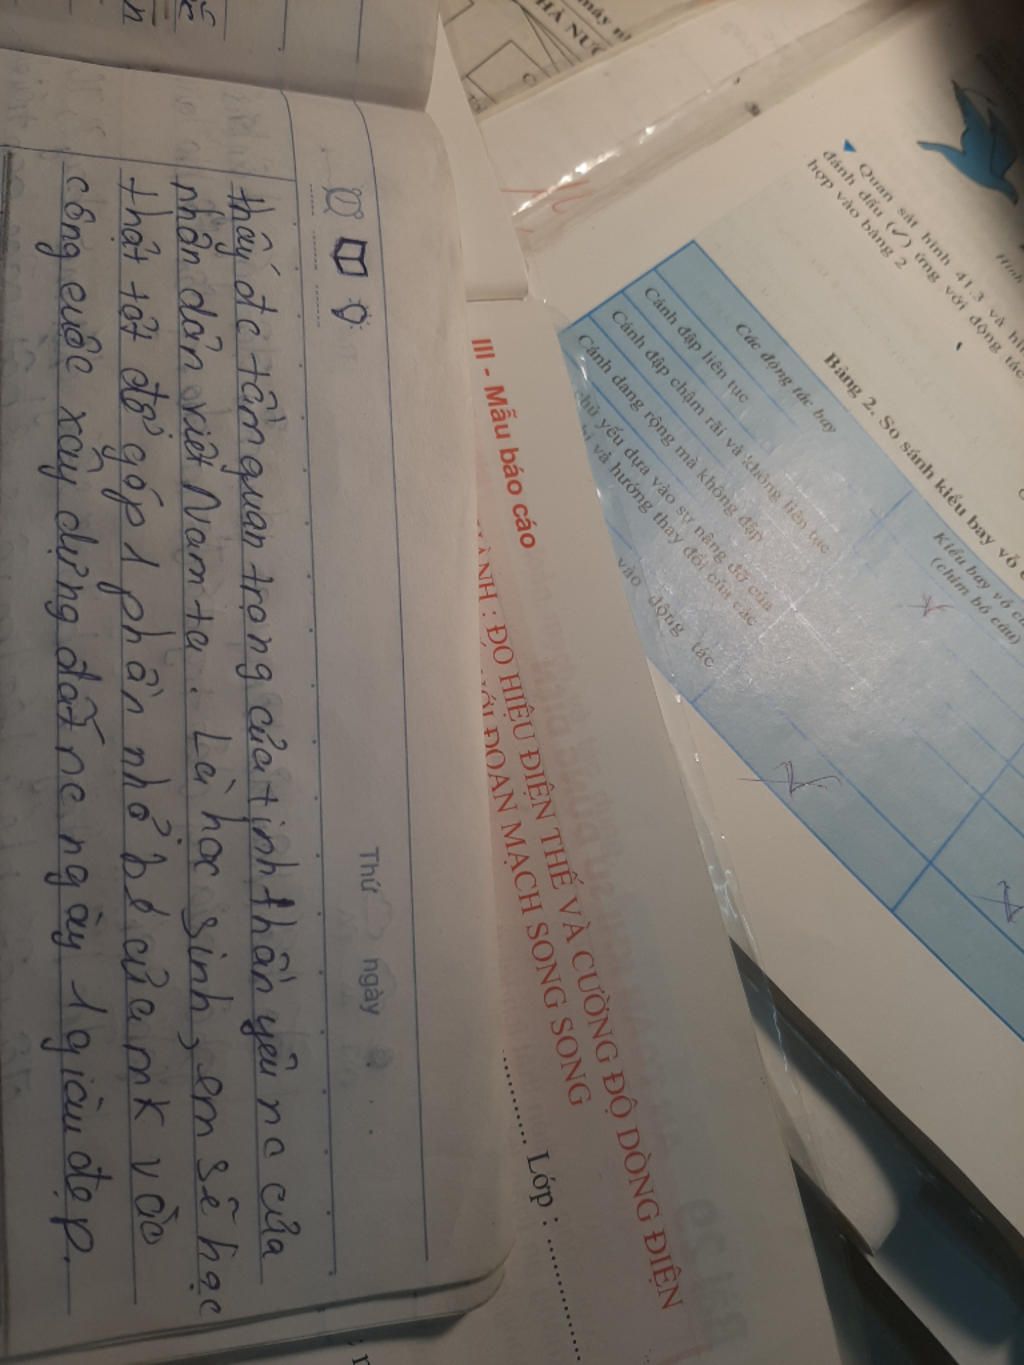 Thứ ngày
thấy đc tầm quan trọng của tinh thần yêu nc của
nhân dân việt Nam ta. Là học sinh, em sẽ học
thật tốt để góp 1 phần nhỏ bé của mk vào
công cuộc xây dựng đất nc ngày 1 giàu đẹp.
III - Mẫu báo cáo
HÀNH : ĐO HIỆU ĐIỆN THẾ VÀ CƯỜNG ĐỘ DÒNG ĐIỆN
ĐOẠN MẠCH SONG SONG
Lớp :
Quan sát hình 41.3 và
đánh dấu (✓) ứng với động tác
hợp vào bảng 2
Bảng 2. So sánh kiểu bay vỗ
Các động tác bay
Kiểu bay vỗ
(chim bồ câu)
Cánh đập liên tục
Cánh đập chậm rãi và không liên tục
Cánh dang rộng mà không đập
yếu dựa vào sự nâng đỡ của
và hướng thay đổi của các
vào động tác